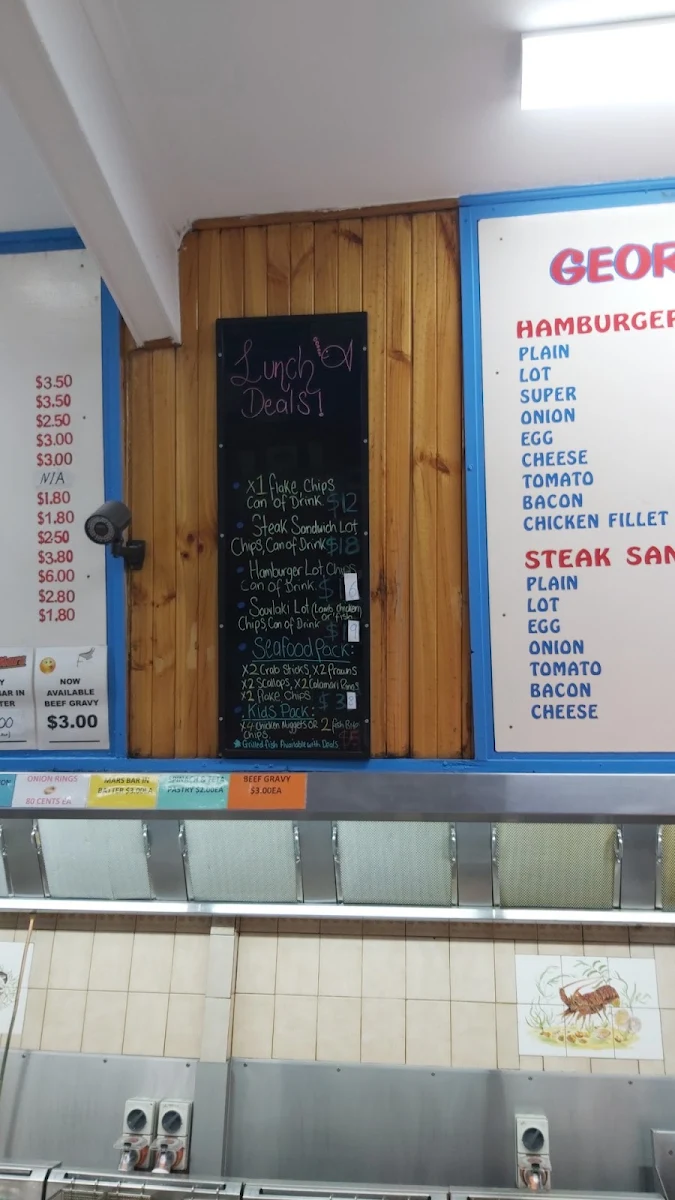 $3.50
$3.50
$2.50
$3.00
$3.00
N/A
$1.80
$1.80
$2.50
$3.80
$6.00
$2.80
$1.80
NOW
AVAILABLE
BEEF GRAVY
$3.00
Lunch
Deals!
x1 flake Chips
Can of Drink $12
Steak Sandwich Lot
Chips, Can of Drink $18
Hamburger Lot Chips
Can of Drink $
Souvlaki Lot (Lamb, Chicken
or fish
Chips, Can of Drink $
Seafood Pack:
x2 Crab Sticks, x2 Prawns
x2 Scallops, x2 Calamari Rings
x1 Flake Chips $
Kids Pack:
x4 Chicken Nuggets OR 2 fish
Chips $5
Grilled fish Available with Deals
GEOR
HAMBURGER
PLAIN
LOT
SUPER
ONION
EGG
CHEESE
TOMATO
BACON
CHICKEN FILLET
STEAK SAN
PLAIN
LOT
EGG
ONION
TOMATO
BACON
CHEESE
ONION RINGS
80 CENTS EA
MARS BAR IN
BATTER
PASTRY $2.00EA
BEEF GRAVY
$3.00EA